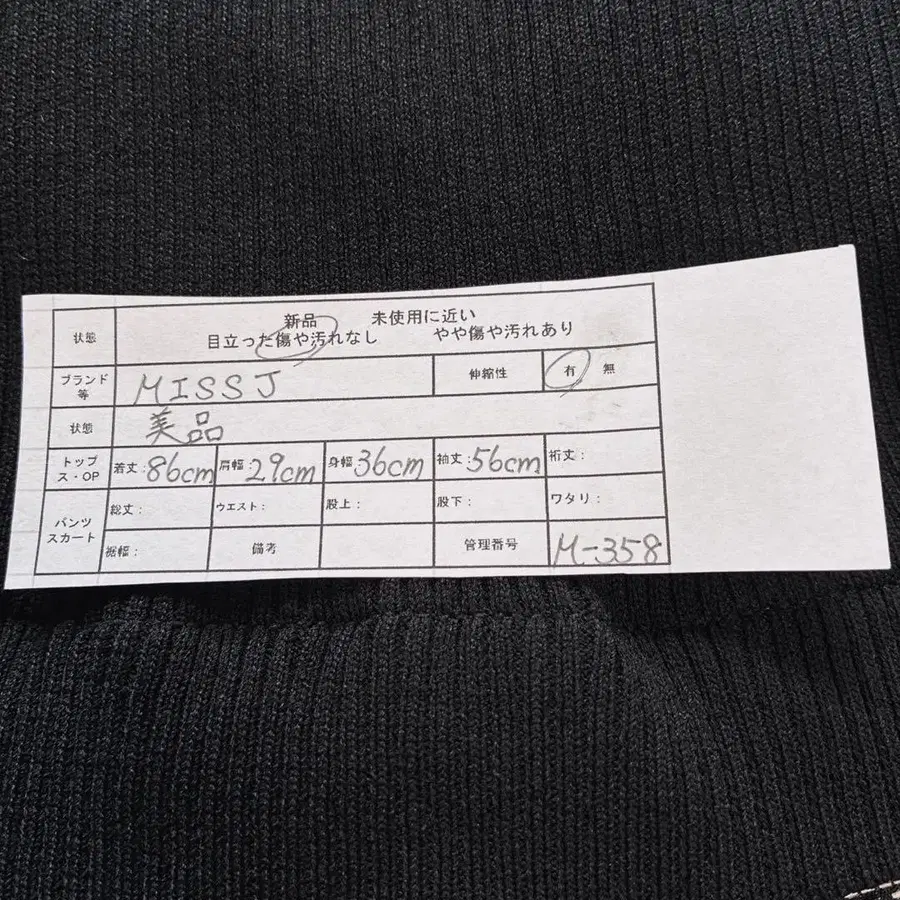 状態 新品 未使用に近い
目立った傷や汚れなし やや傷や汚れあり
ブランド等 MISS J 伸縮性 有 無
状態 美品
トップス・OP 着丈:86cm 肩幅:29cm 身幅:36cm 袖丈:56cm 裄丈:
パンツスカート 総丈: ウエスト: 股上: 股下: ワタリ:
裾幅: 備考 管理番号 M-358